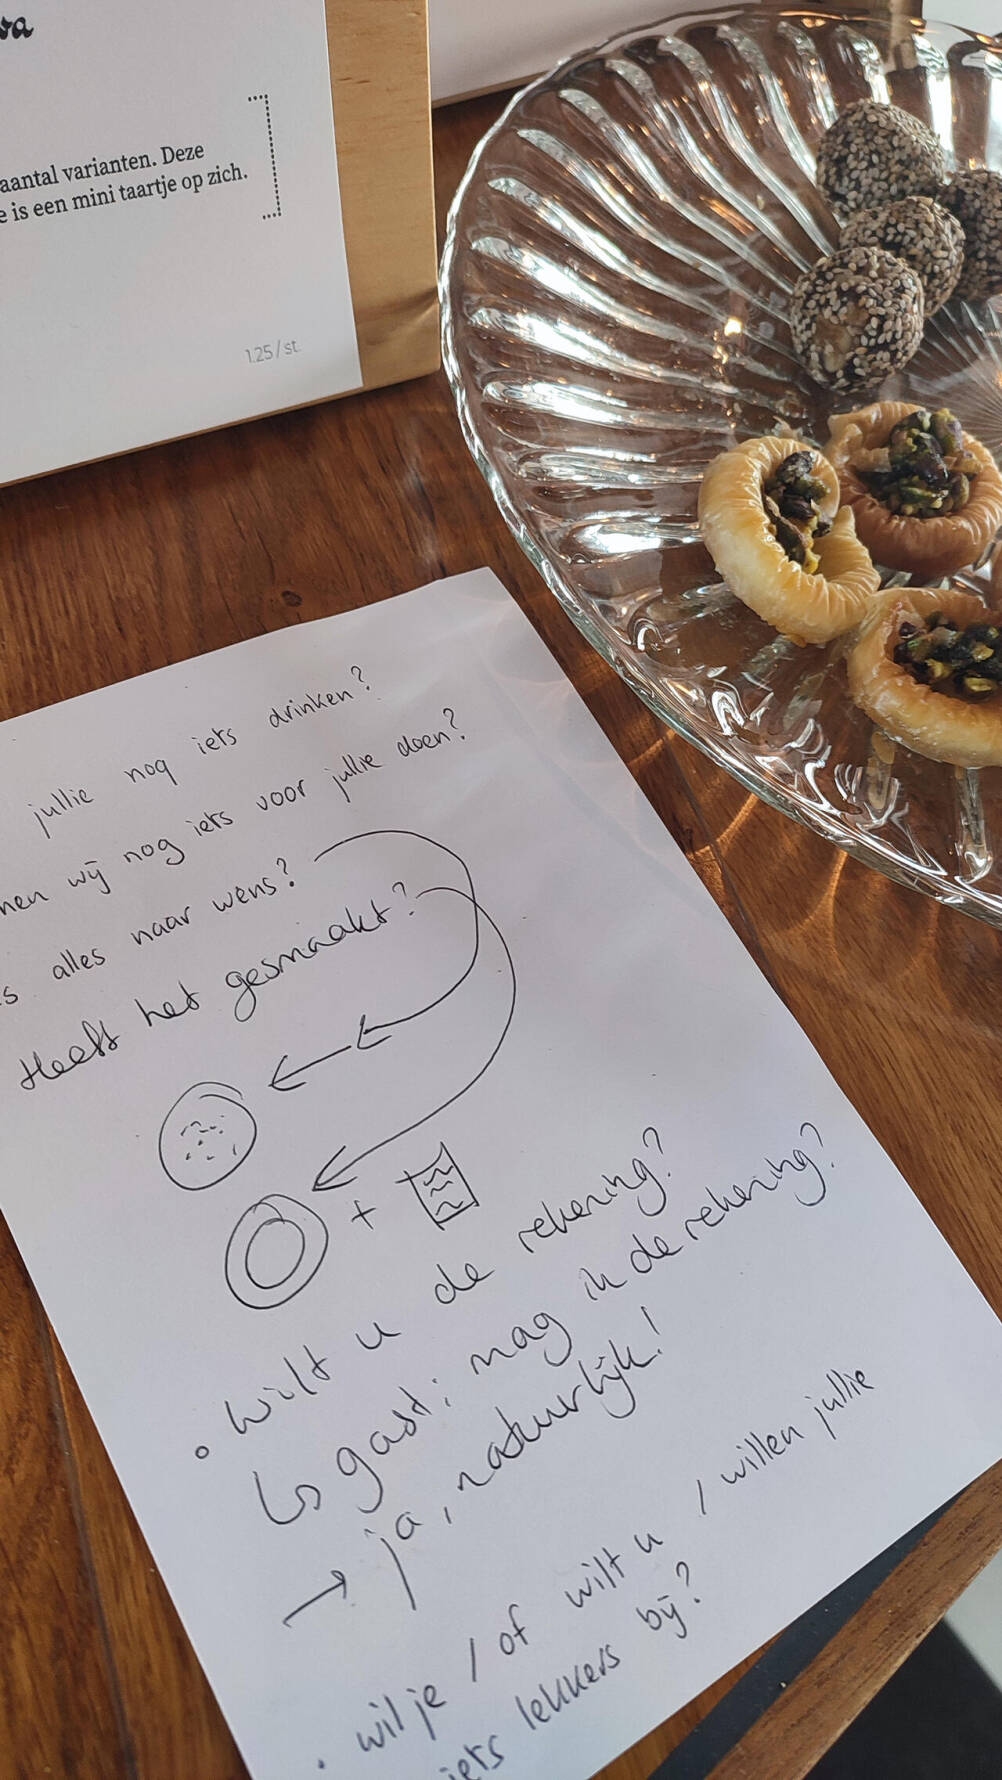 aantal varianten. Deze
e is een mini taartje op zich.
1.25/st.
jullie nog iets drinken?
nen wij nog iets voor jullie doen?
s alles naar wens?
Heeft het gesmaakt?
+
• wilt u de rekening?
↳ gast: mag ik de rekening?
→ ja, natuurlijk!
• wil je / of wilt u / willen jullie
iets lekkers bij?